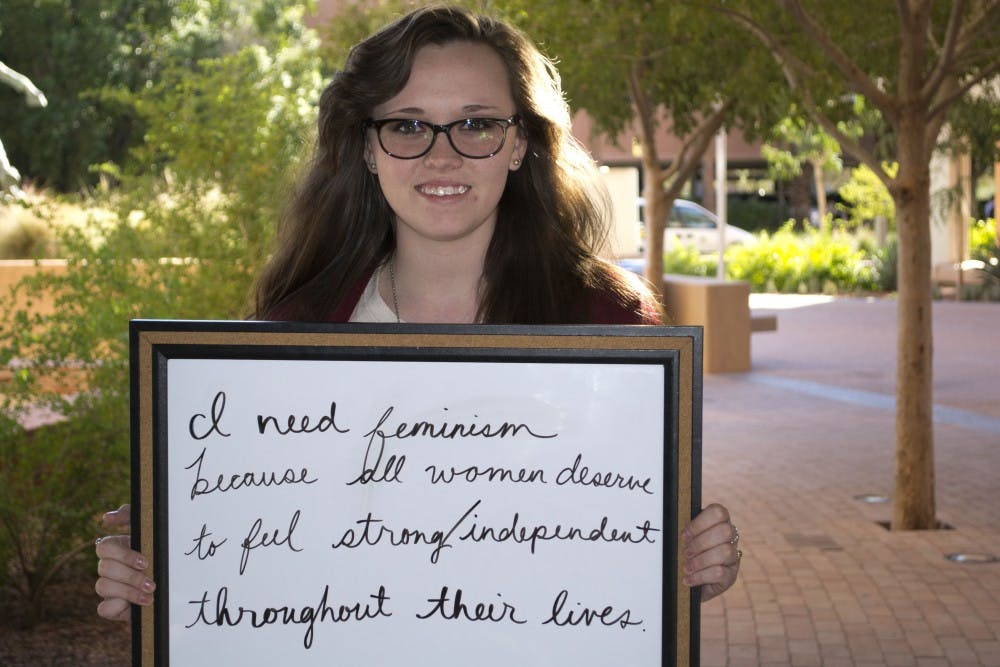 I need feminism
because all women deserve
to feel strong/independent
throughout their lives.